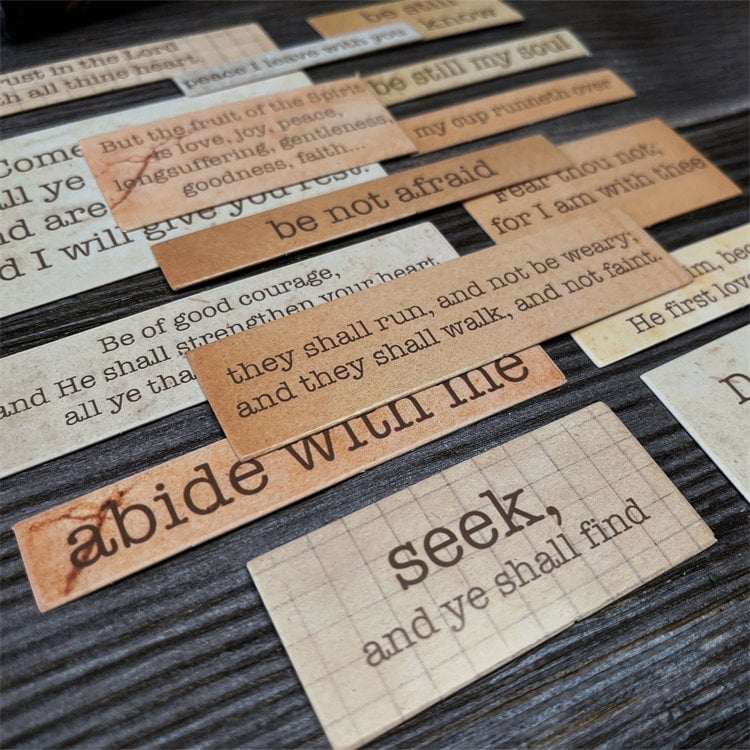 be still
know
rust in the Lord
th all thine heart,
peace I leave with you
be still my soul
But the fruit of the Spirit
is love, joy, peace,
longsuffering, gentleness,
goodness, faith...
my cup runneth over
Come
ll ye
nd are
d I will give you rest.
be not afraid
Fear thou not;
for I am with thee
Be of good courage,
and He shall strengthen your heart,
all ye tha
they shall run, and not be weary;
and they shall walk, and not faint.
im, bec
He first lov
abide with me
D
seek,
and ye shall find